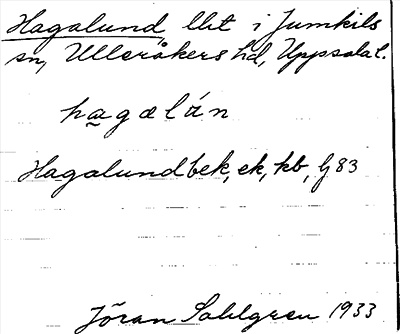 Hagalund, llt i Jumkils
sn, Ulleråkers hd, Uppsala l.
hagalún
Hagalund bek, ek, kb, lj 83
Jöran Sahlgren 1933